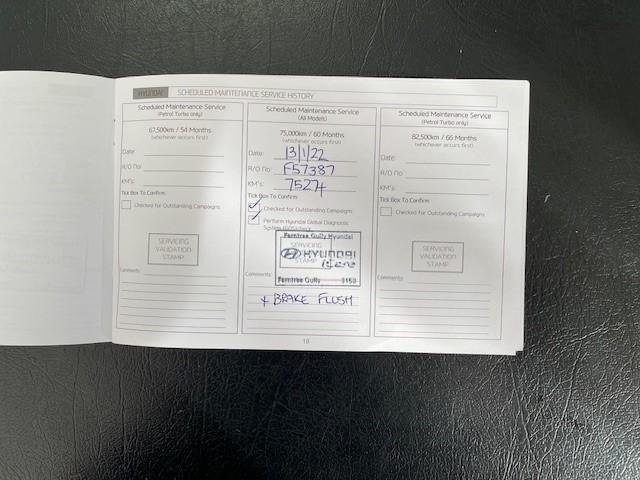 HYUNDAI SCHEDULED MAINTENANCE SERVICE HISTORY
Scheduled Maintenance Service
(Petrol Turbo only)
67,500km / 54 Months
(whichever occurs first)
Date:
R/O No:
KM's:
Tick Box To Confirm:
Checked for Outstanding Campaigns
SERVICING
VALIDATION
STAMP
Comments:
Scheduled Maintenance Service
(All Models)
75,000km / 60 Months
(whichever occurs first)
Date: 13/1/22
R/O No: F57387
KM's: 75274
Tick Box To Confirm:
Checked for Outstanding Campaigns
Perform Hyundai Global Diagnostic
System
Ferntree Gully Hyundai
SERVICING
HYUNDAI
STAMP
Ferntree Gully 3156
Comments:
+ BRAKE FLUSH
Scheduled Maintenance Service
(Petrol Turbo only)
82,500km / 66 Months
(whichever occurs first)
Date:
R/O No:
KM's:
Tick Box To Confirm:
Checked for Outstanding Campaigns
SERVICING
VALIDATION
STAMP
Comments:
18